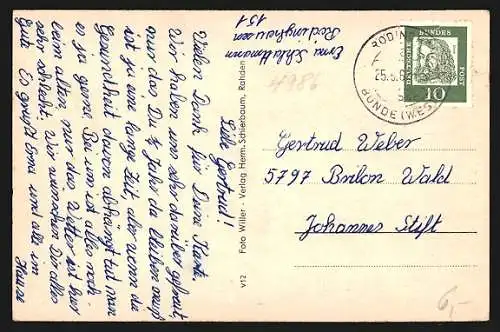 Erna Schlottmann
Rödinghausen
151
4986
Liebe Gertrud!
Vielen Dank für Deine Karte.
Wir haben uns sehr darüber gefreut,
nur das Du ½ Jahr da bleiben mußt
ist ja eine lange Zeit, aber wenn die
Gesundheit davon abhängt tut man
es ja gerne. Bei uns ist alles noch
beim alten, nur das Wetter ist hier
sehr schlecht. Wir wünschen Dir alles
Gute. Es grüßt Erna und alle im
Hause
V12 Foto Willer - Verlag Herm. Schierbaum, Rahden
RÖDIN
25.5.6
BÜNDE (WESTF
DEUTSCHE
BUNDES
POST
10
Gertrud Weber
5797 Brilon Wald
Johannes Stift
6,-